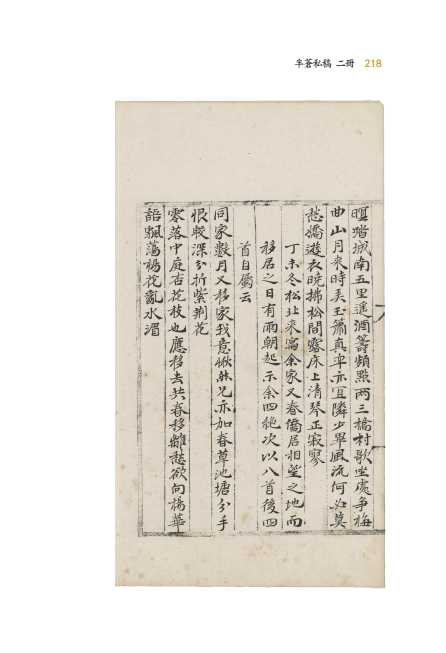 半蒼私稿 二冊 218
暝踏城南五里遙酒籌頻點兩三橋村歌坐處爭梅
曲山月來時美玉簫真率亦宜隣少畢風流何必莫
愁嬌遊衣晚拂松間露床上清琴正寂寥
丁未冬松北來寓余家又春僑居相望之地而
移居之日有雨朝起示余四絶次以八首後四
首自屬云
同家數月又移家我意愀然兄亦加春草池塘分手
恨較深分折紫荊花
零落中庭杏花枝也應移去共春移離愁欲向楊華
語飄蕩楊花亂水湄